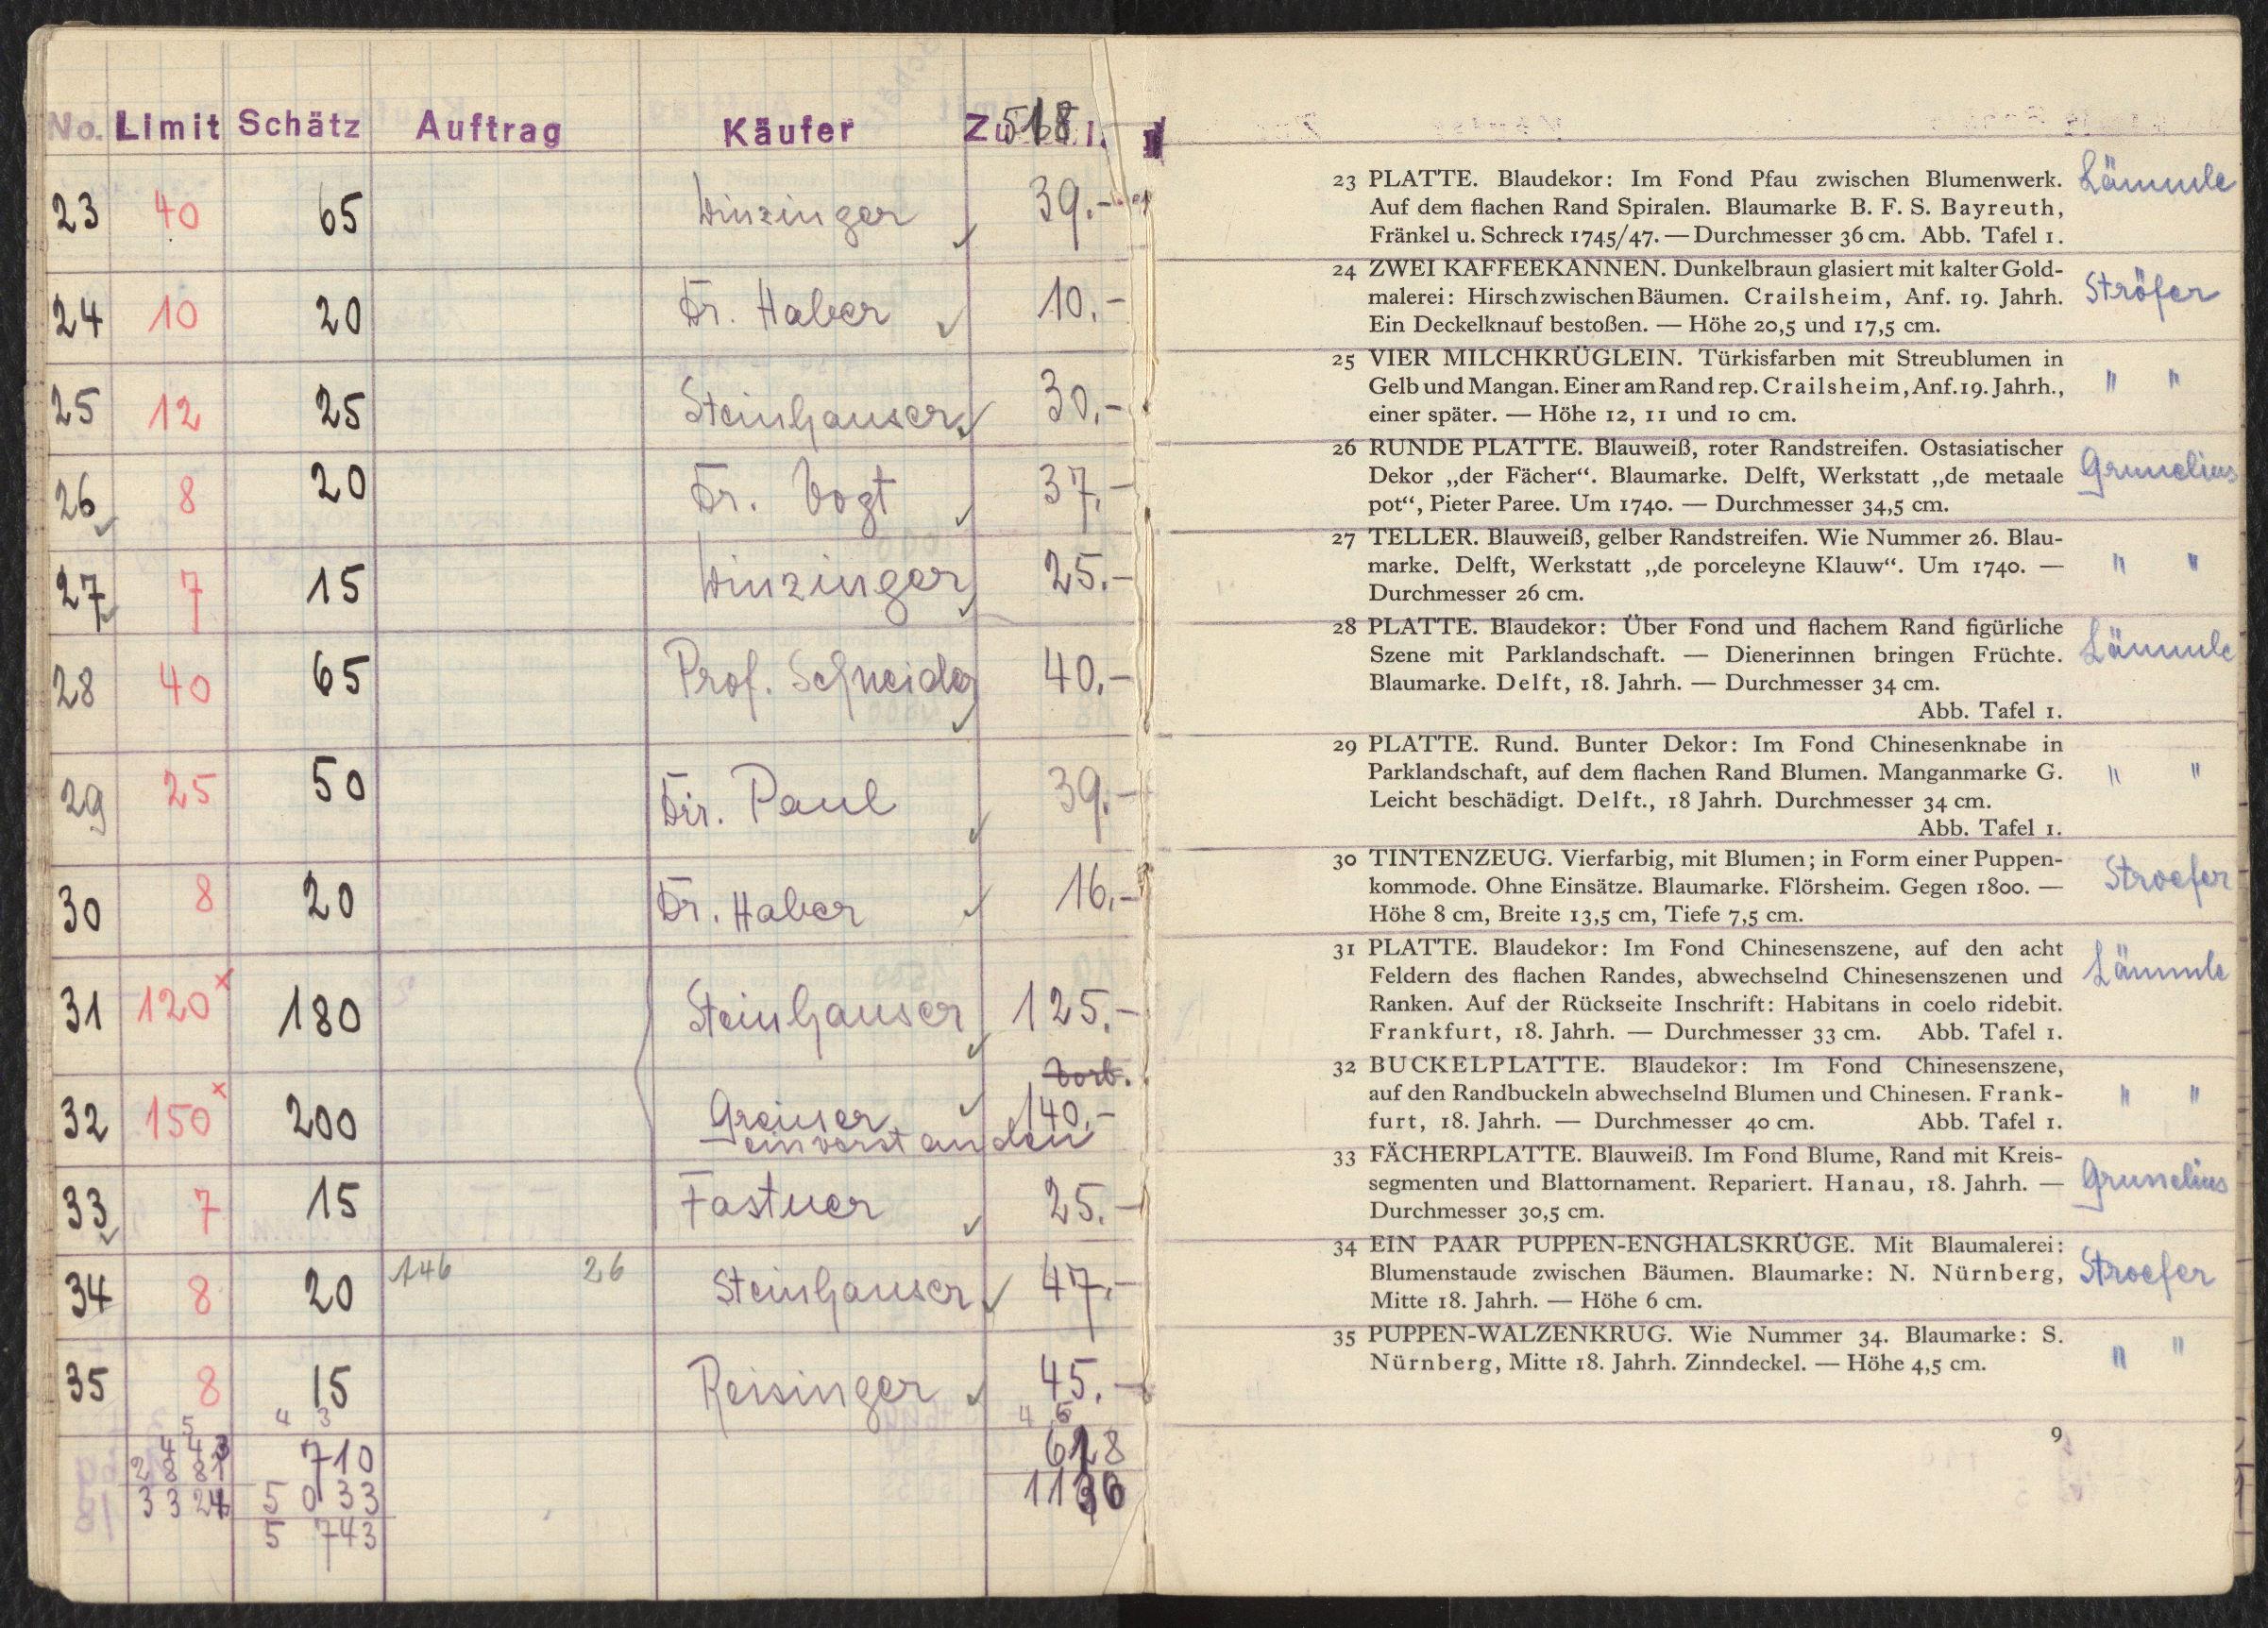 No. Limit Schätz Auftrag Käufer 518
23 40 65 Winzinger ✓ 39.-
24 10 20 Dr. Haber ✓ 10.-
25 12 25 Steinhauser ✓ 30.-
26 ✓ 8 20 Dr. Vogt ✓ 37.-
27 ✓ 7 15 Winzinger ✓ 25.-
28 40 65 Prof. Schneider ✓ 40.-
29 25 50 Dir. Paul ✓ 39.-
30 8 20 Dr. Haber ✓ 16.-
31 120 x 180 Steinhauser ✓ 125.-
Vorb.
32 150 x 200 Greiner ✓ 140.-
einverstanden
33 ✓ 7 15 Fastner ✓ 25.-
34 8 20 146 26 Steinhauser ✓ 47.-
35 8 15 Reisinger ✓ 45.-
5 4 3 4 6
443 710 618
2881 5033 1136
3324 5743
23 PLATTE. Blaudekor: Im Fond Pfau zwischen Blumenwerk. Lämmle
Auf dem flachen Rand Spiralen. Blaumarke B. F. S. Bayreuth,
Fränkel u. Schreck 1745/47. — Durchmesser 36 cm. Abb. Tafel 1.
24 ZWEI KAFFEEKANNEN. Dunkelbraun glasiert mit kalter Gold-
malerei: Hirsch zwischen Bäumen. Crailsheim, Anf. 19. Jahrh. Ströfer
Ein Deckelknauf bestoßen. — Höhe 20,5 und 17,5 cm.
25 VIER MILCHKRÜGLEIN. Türkisfarben mit Streublumen in
Gelb und Mangan. Einer am Rand rep. Crailsheim, Anf. 19. Jahrh., " "
einer später. — Höhe 12, 11 und 10 cm.
26 RUNDE PLATTE. Blauweiß, roter Randstreifen. Ostasiatischer
Dekor „der Fächer“. Blaumarke. Delft, Werkstatt „de metaale Grunelius
pot“, Pieter Paree. Um 1740. — Durchmesser 34,5 cm.
27 TELLER. Blauweiß, gelber Randstreifen. Wie Nummer 26. Blau-
marke. Delft, Werkstatt „de porceleyne Klauw“. Um 1740. — " "
Durchmesser 26 cm.
28 PLATTE. Blaudekor: Über Fond und flachem Rand figürliche
Szene mit Parklandschaft. — Dienerinnen bringen Früchte. Lämmle
Blaumarke. Delft, 18. Jahrh. — Durchmesser 34 cm.
Abb. Tafel 1.
29 PLATTE. Rund. Bunter Dekor: Im Fond Chinesenknabe in
Parklandschaft, auf dem flachen Rand Blumen. Manganmarke G. " "
Leicht beschädigt. Delft., 18 Jahrh. Durchmesser 34 cm.
Abb. Tafel 1.
30 TINTENZEUG. Vierfarbig, mit Blumen; in Form einer Puppen-
kommode. Ohne Einsätze. Blaumarke. Flörsheim. Gegen 1800. — Stroefer
Höhe 8 cm, Breite 13,5 cm, Tiefe 7,5 cm.
31 PLATTE. Blaudekor: Im Fond Chinesenszene, auf den acht
Feldern des flachen Randes, abwechselnd Chinesenszenen und Lämmle
Ranken. Auf der Rückseite Inschrift: Habitans in coelo ridebit.
Frankfurt, 18. Jahrh. — Durchmesser 33 cm. Abb. Tafel 1.
32 BUCKELPLATTE. Blaudekor: Im Fond Chinesenszene,
auf den Randbuckeln abwechselnd Blumen und Chinesen. Frank- " "
furt, 18. Jahrh. — Durchmesser 40 cm. Abb. Tafel 1.
33 FÄCHERPLATTE. Blauweiß. Im Fond Blume, Rand mit Kreis-
segmenten und Blattornament. Repariert. Hanau, 18. Jahrh. — Grunelius
Durchmesser 30,5 cm.
34 EIN PAAR PUPPEN-ENGHALSKRÜGE. Mit Blaumalerei:
Blumenstaude zwischen Bäumen. Blaumarke: N. Nürnberg, Stroefer
Mitte 18. Jahrh. — Höhe 6 cm.
35 PUPPEN-WALZENKRUG. Wie Nummer 34. Blaumarke: S.
Nürnberg, Mitte 18. Jahrh. Zinndeckel. — Höhe 4,5 cm. " "
9